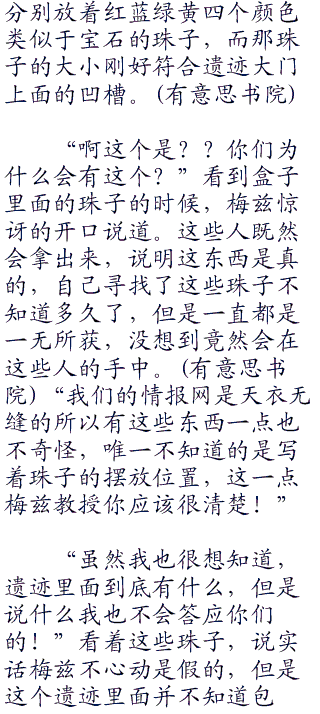 分别放着红蓝绿黄四个颜色
类似于宝石的珠子，而那珠
子的大小刚好符合遗迹大门
上面的凹槽。(有意思书院)
“啊这个是？？你们为
什么会有这个？”看到盒子
里面的珠子的时候，梅兹惊
讶的开口说道。这些人既然
会拿出来，说明这东西是真
的，自己寻找了这些珠子不
知道多久了，但是一直都是
一无所获，没想到竟然会在
这些人的手中。(有意思书
院)“我们的情报网是天衣无
缝的所以有这些东西一点也
不奇怪，唯一不知道的是写
着珠子的摆放位置，这一点
梅兹教授你应该很清楚！”
“虽然我也很想知道，
遗迹里面到底有什么，但是
说什么我也不会答应你们
的！”看着这些珠子，说实
话梅兹不心动是假的，但是
这个遗迹里面并不知道包